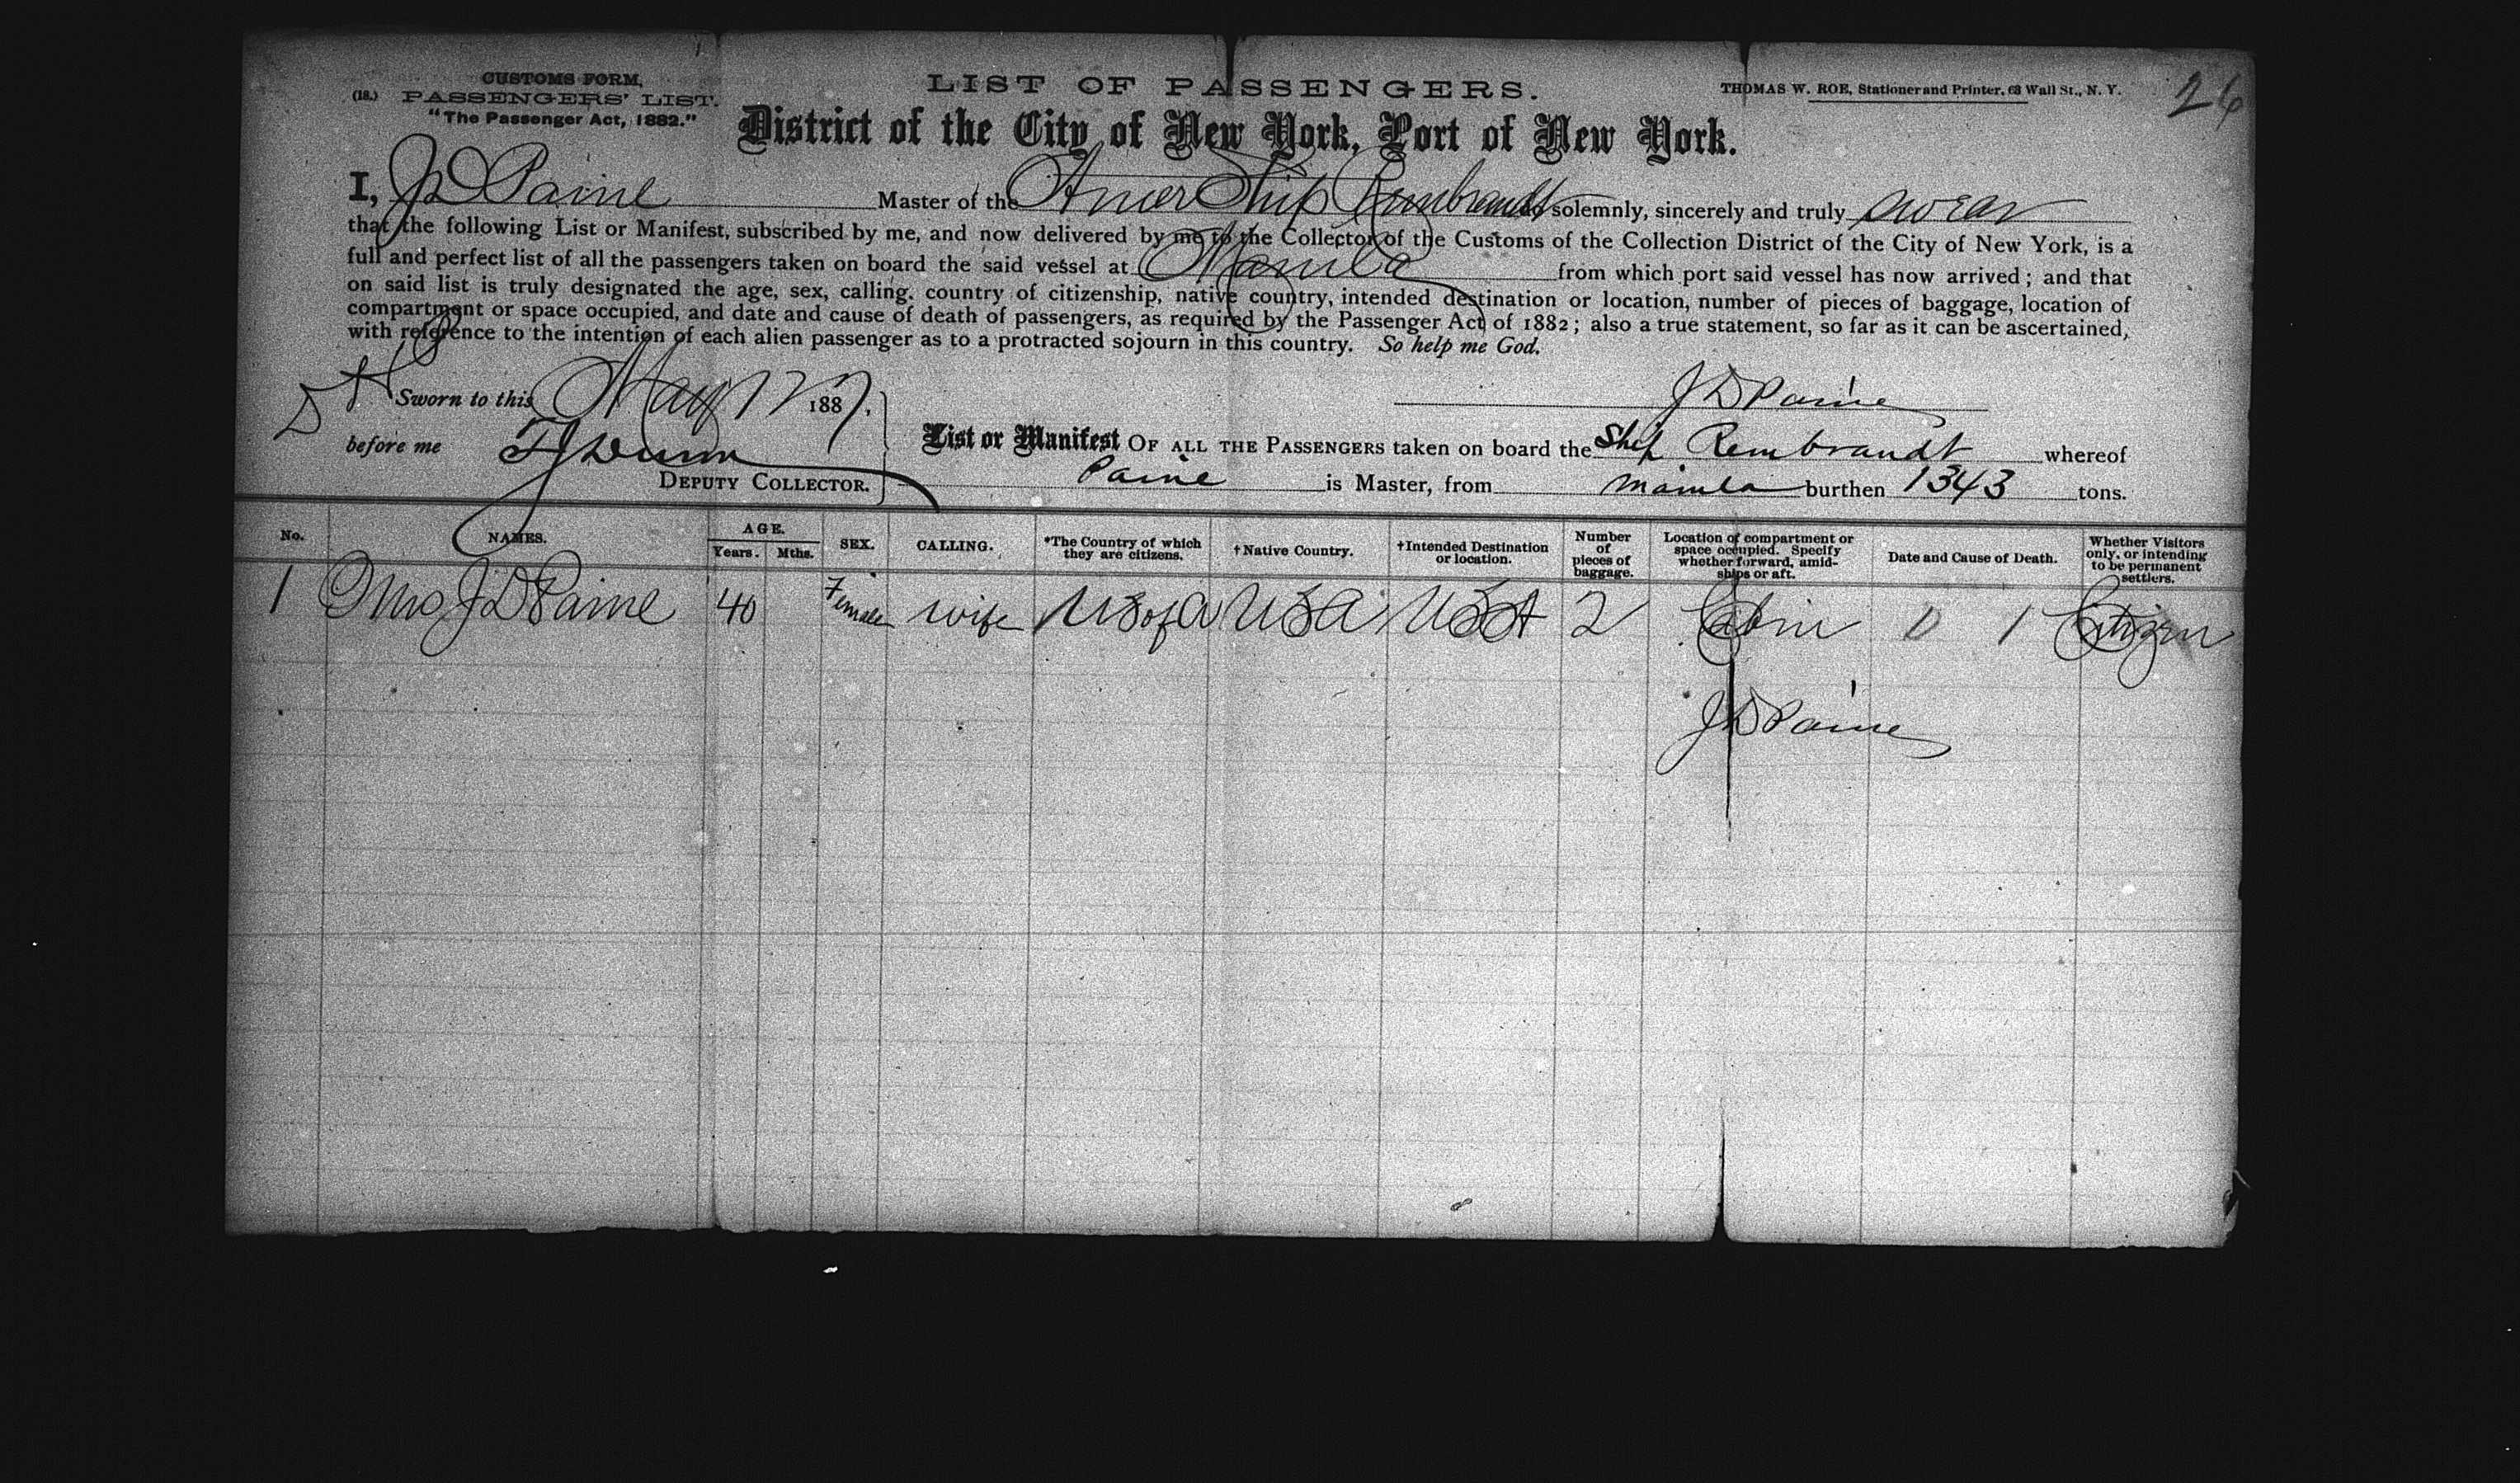 CUSTOMS FORM,
(18.) PASSENGERS' LIST.
"The Passenger Act, 1882."
LIST OF PASSENGERS.
THOMAS W. ROE, Stationer and Printer, 63 Wall St., N. Y.
26
District of the City of New York, Port of New York.
I, J D Paine Master of the Amer Ship Rembrandt do solemnly, sincerely and truly swear
that the following List or Manifest, subscribed by me, and now delivered by me to the Collector of the Customs of the Collection District of the City of New York, is a
full and perfect list of all the passengers taken on board the said vessel at Manila from which port said vessel has now arrived; and that
on said list is truly designated the age, sex, calling, country of citizenship, native country, intended destination or location, number of pieces of baggage, location of
compartment or space occupied, and date and cause of death of passengers, as required by the Passenger Act of 1882; also a true statement, so far as it can be ascertained,
with reference to the intention of each alien passenger as to a protracted sojourn in this country. So help me God.
Sworn to this May 17 1887,
J D Paine
before me
DEPUTY COLLECTOR.
List or Manifest OF ALL THE PASSENGERS taken on board the Ship Rembrandt whereof
Paine is Master, from Manila burthen 1343 tons.
No. NAMES. AGE. Years. Mths. SEX. CALLING. *The Country of which they are citizens. †Native Country. †Intended Destination or location. Number of pieces of baggage. Location of compartment or space occupied. Specify whether forward, amidships or aft. Date and Cause of Death. Whether Visitors only, or intending to be permanent settlers.
1 Mrs J D Paine 40 Female wife U S of A U S A U S A 2 Cabin 0 1 Citizen
J D Paine